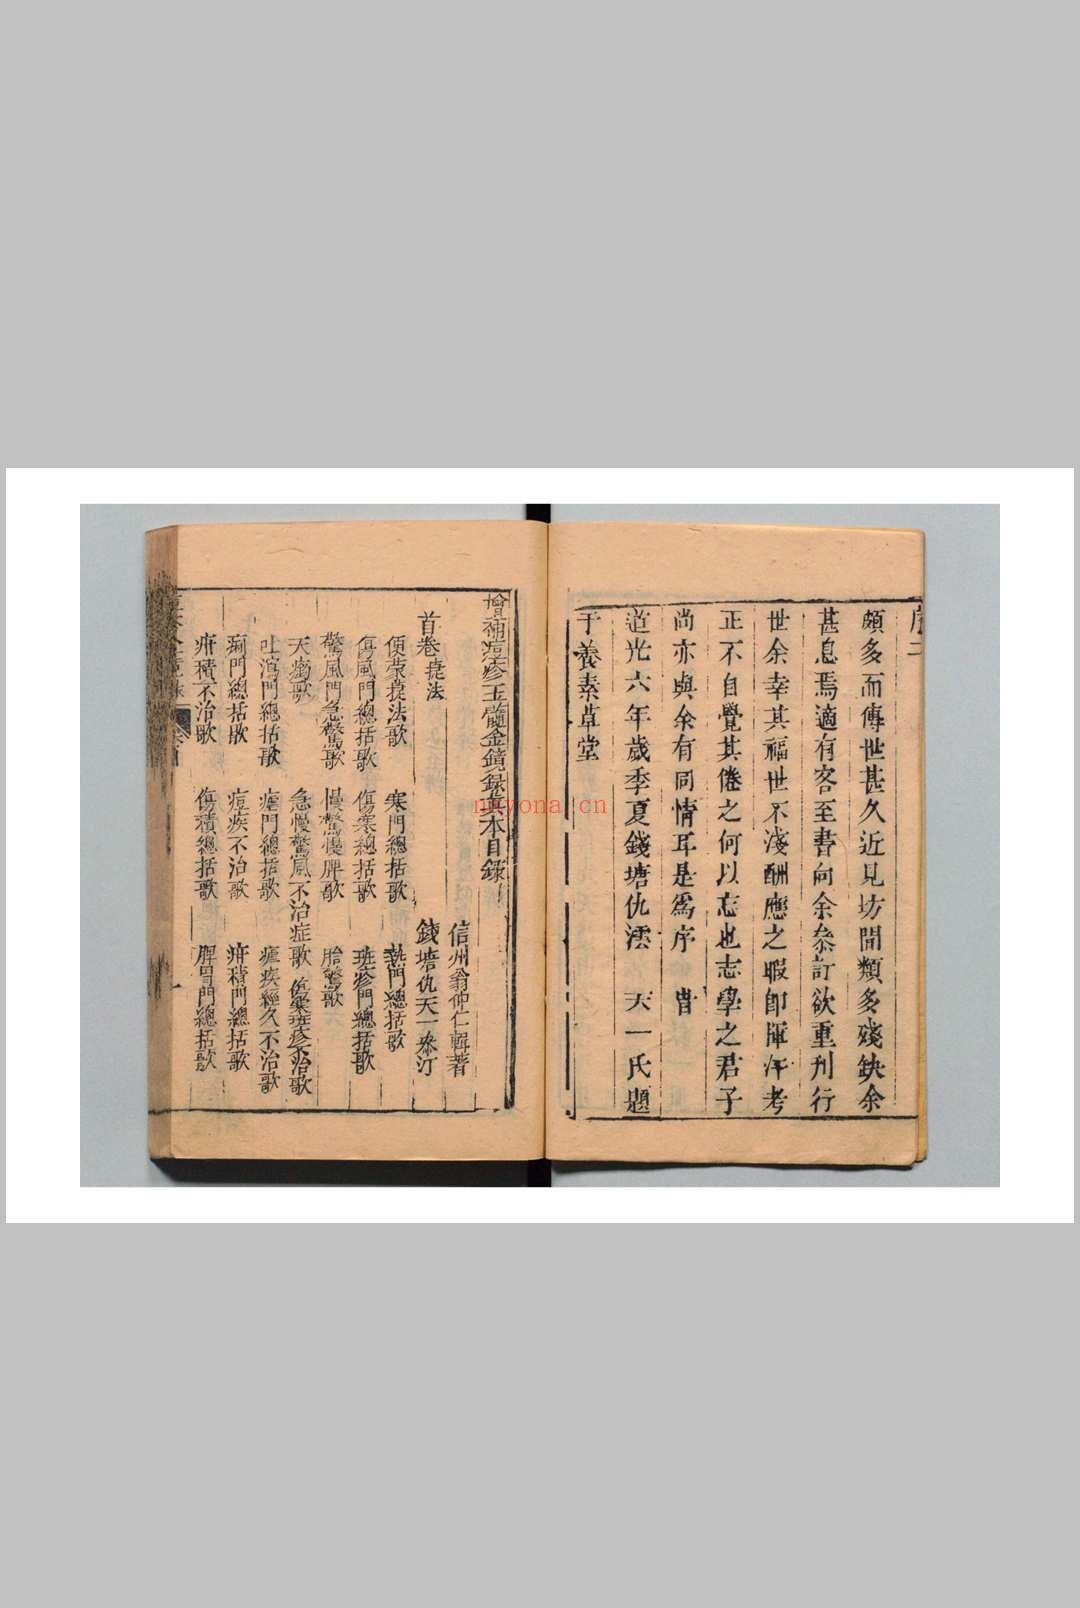 頗多而傳世甚久近見坊間類多殘缺余
甚息焉適有客至書向余叅訂欲重刊行
世余幸其福世不淺酬應之暇即揮汗考
正不自覺其倦之何以忘也志學之君子
尚亦與余有同情耳是爲序 旹
道光六年歲季夏錢塘仇澐 天一氏題
于養素草堂
增補痘疹玉髓金鏡錄真本目錄
信州翁仲仁輯著
首卷㨗法 錢塘仇天一叅訂
便蒙㨗法歌 寒門總括歌 熱門總括歌
傷風門總括歌 傷寒總括歌 班疹門總括歌
驚風門急驚歌 慢驚慢脾歌 胎驚歌
天癇歌 急慢驚風不治症歌 傷寒班疹不治歌
吐瀉門總括歌 瘧門總括歌 瘧疾經久不治歌
痢門總括歌 痘疾不治歌 疳積門總括歌
疳積不治歌 傷積總括歌 脾胃門總括歌
nayona.cn